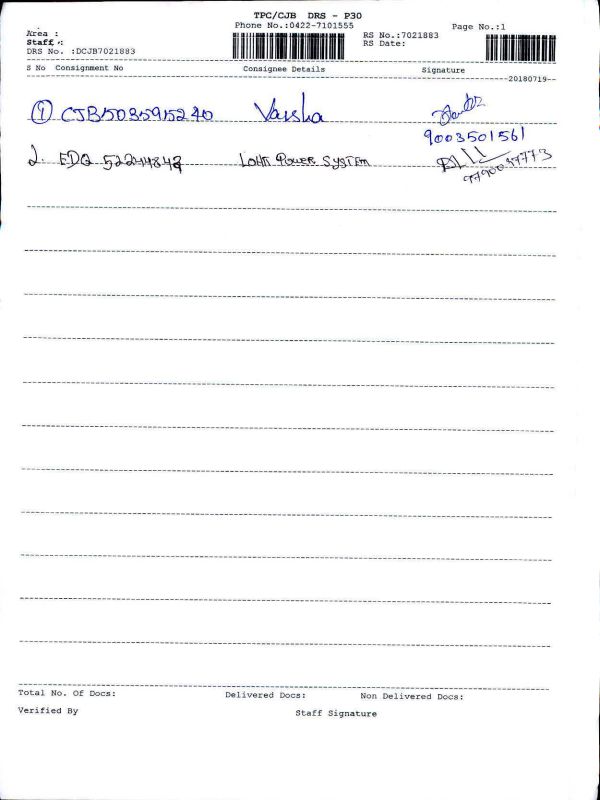 TPC/CJB DRS - P30
Phone No.:0422-7101555
Page No.:1
Area :
RS No.:7021883
Staff :
RS Date:
DRS No. :DCJB7021883
S No Consignment No Consignee Details Signature
20180719
1 CJB1503595240 Varsha
9003501561
2. EDQ Power System
Total No. Of Docs: Delivered Docs: Non Delivered Docs:
Verified By Staff Signature